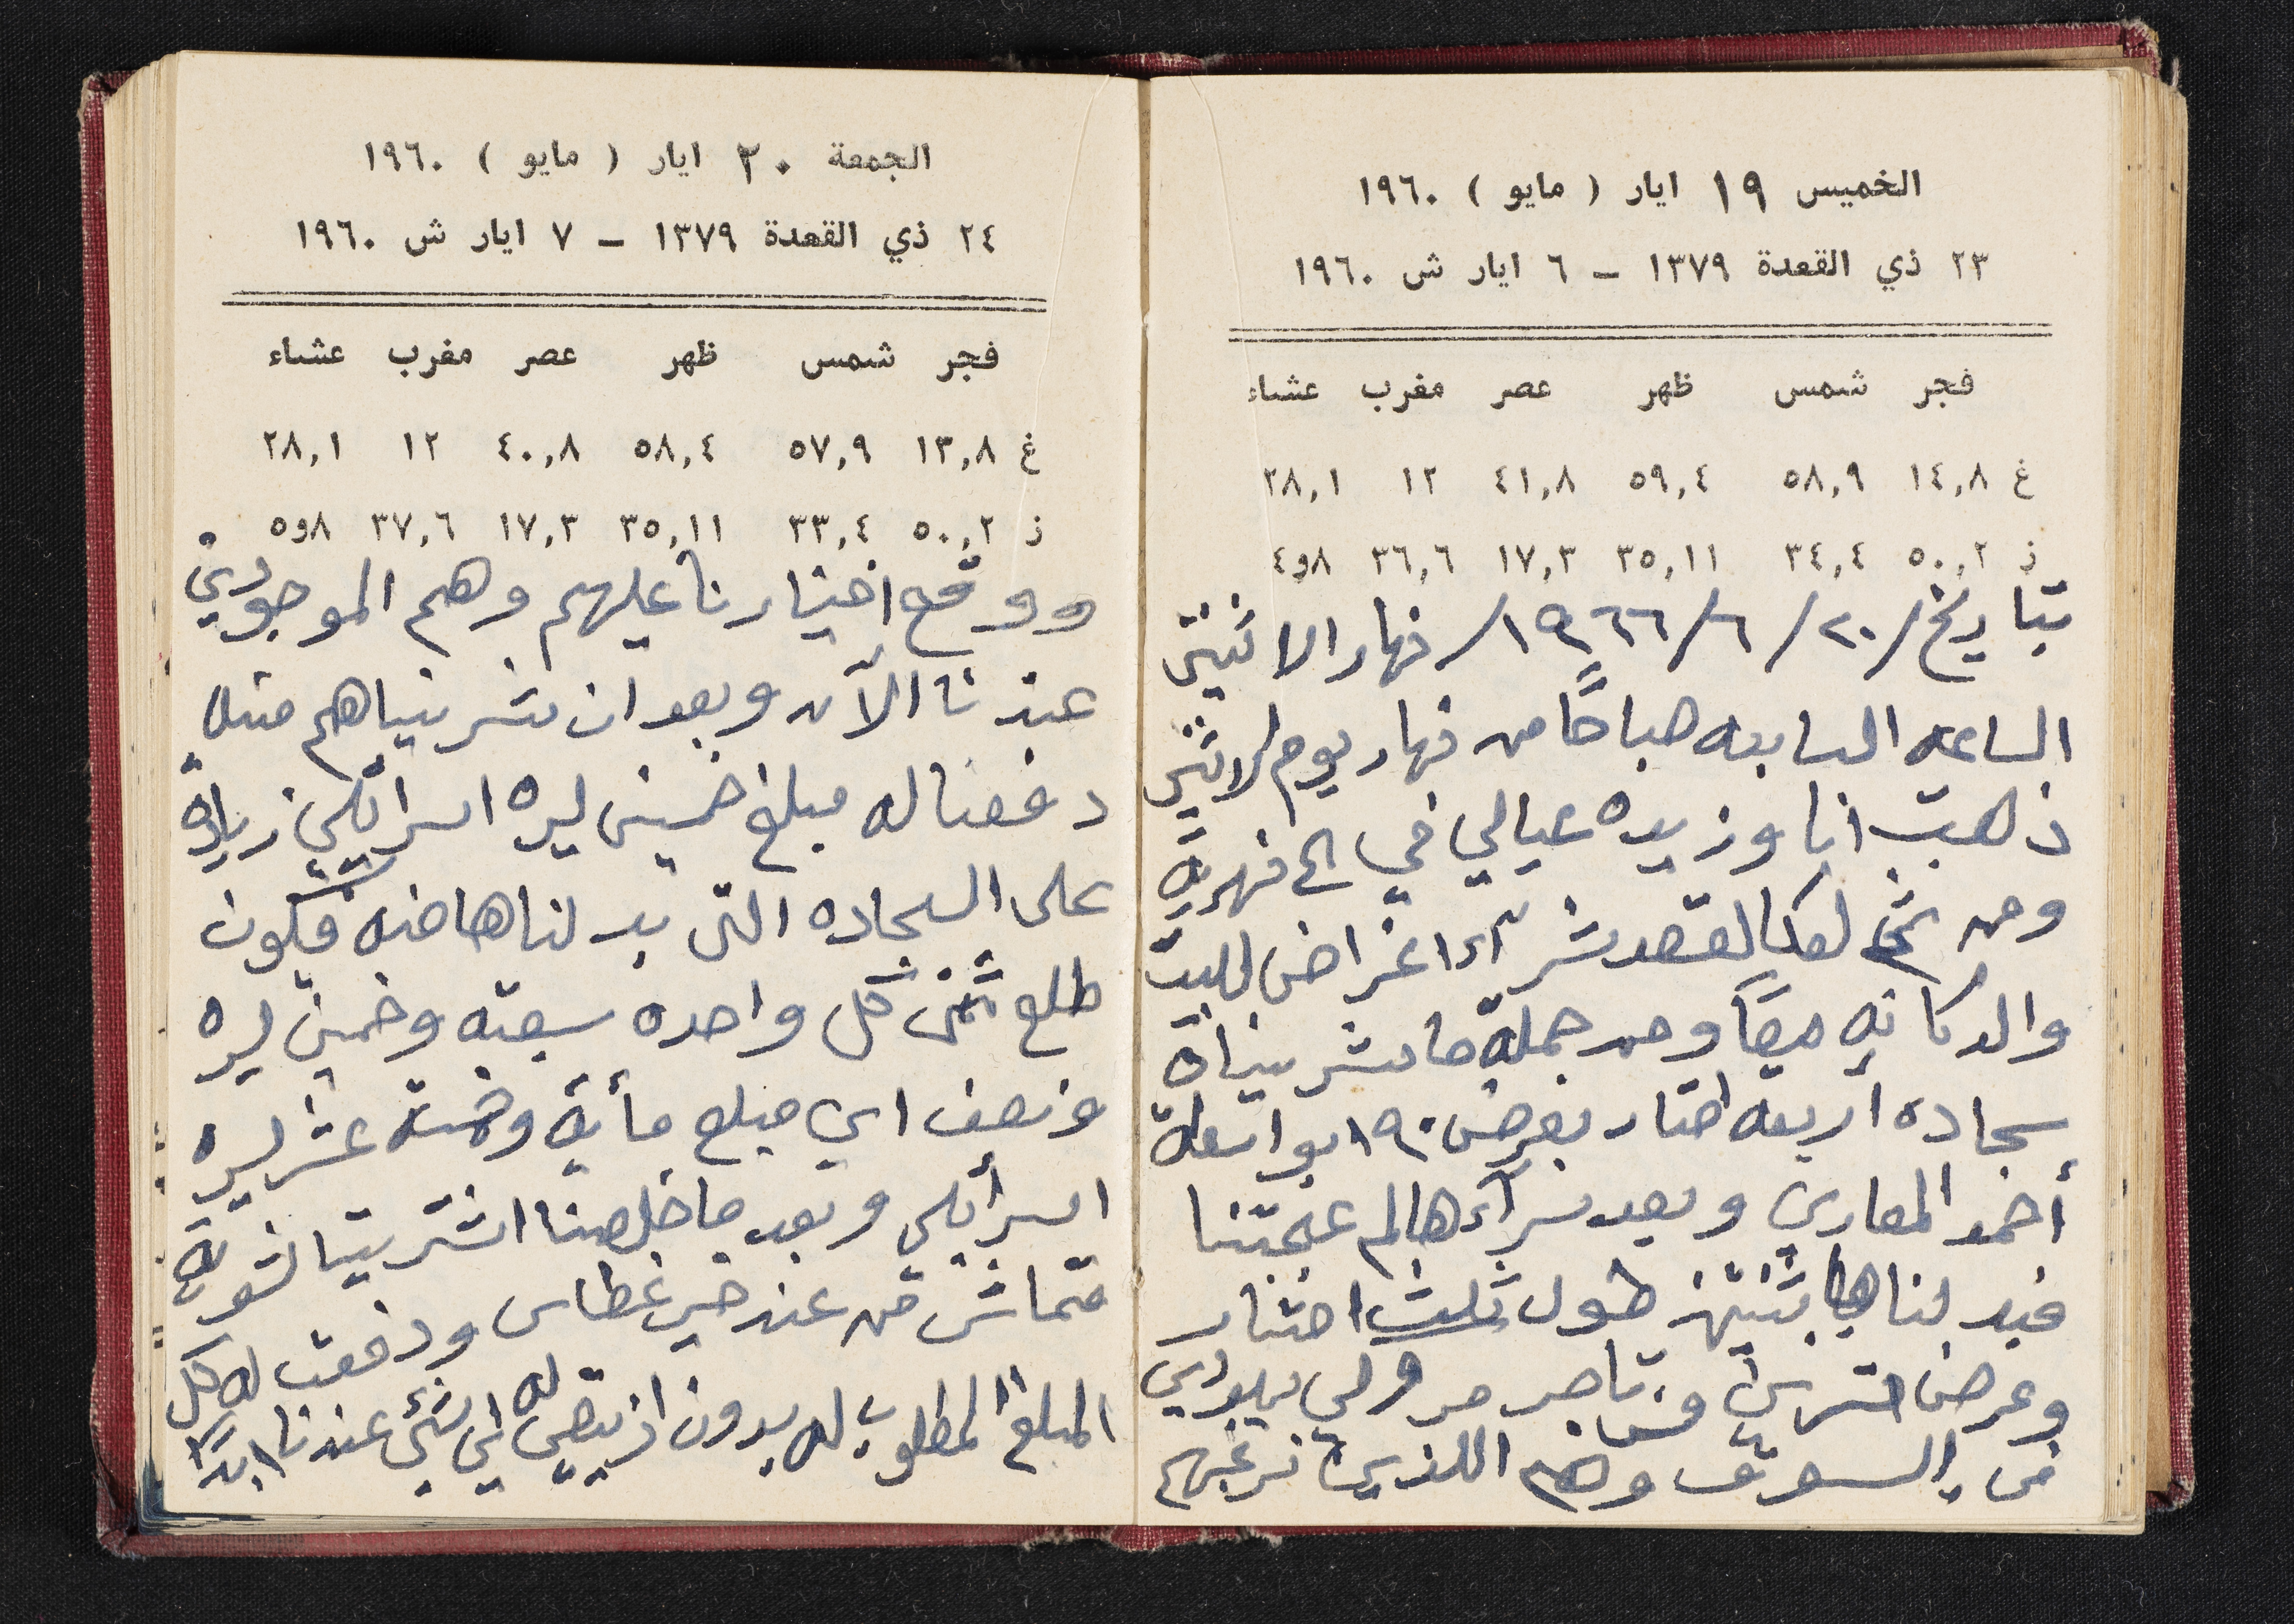 الخميس ١٩ ايار ( مايو ) ١٩٦٠
٢٣ ذي القعدة ١٣٧٩ – ٦ ايار ش ١٩٦٠
فجر شمس ظهر عصر مغرب عشاء
غ ١٤,٨ ٥٨,٩ ٥٩,٤ ٤١,٨ ١٢ ٢٨,١
ز ٥٠,٢ ٣٤,٤ ٣٥,١١ ١٧,٣ ٣٦,٦ ٨و٤
بتاريخ /٢٠/ ٦/ ١٩٦٦/ نهار الاثنين
الساعه السابعه صباحًا من نهار يوم الاثنين
ذهبت انا وزيده عيالي في الى نهريه
ومن ثم لعكا لقصد شرآء اغراض للبيت
والدكانه معًا ومن جملة ما شريناه
سجاده أربعه امتار بعرض ١٩٠ بواسطة
أحمد المعاري وبعد شرآءها لم عجبتنا
فبدلناها بثنتين طول ثلث امتار
وعرض مترين من تاجر
في السوق وهم اللذين نرغبهم
الجمعة ٢٠ ايار ( مايو ) ١٩٦٠
٢٤ ذي القعدة ١٣٧٩ – ٧ ايار ش ١٩٦٠
فجر شمس ظهر عصر مغرب عشاء
غ ١٣,٨ ٥٧,٩ ٥٨,٤ ٤٠,٨ ١٢ ٢٨,١
ز ٥٠,٢ ٣٣,٤ ٣٥,١١ ١٧,٣ ٣٧,٦ ٨و٥
ووقع اختيارنا عليهم وهم الموجودين
عندنا الآن وبعد ان شريناهم منه
دفعنا له مبلغ خمسين ليره اسرائلي زيادة
على السجاده التي بدلناها منه فيكون
طلع ثمن كل واحده سبعة وخمسين ليره
ونصف اي مبلغ مأية وخمسة عشر ليره
اسرأيلي وبعد ما خلصنا اشترينا شوية
قماش من عند خير غطاس ودفعت له كل
المبلغ المطلوب له بدون ان يبقى له اي شئ عندنا ابدًا